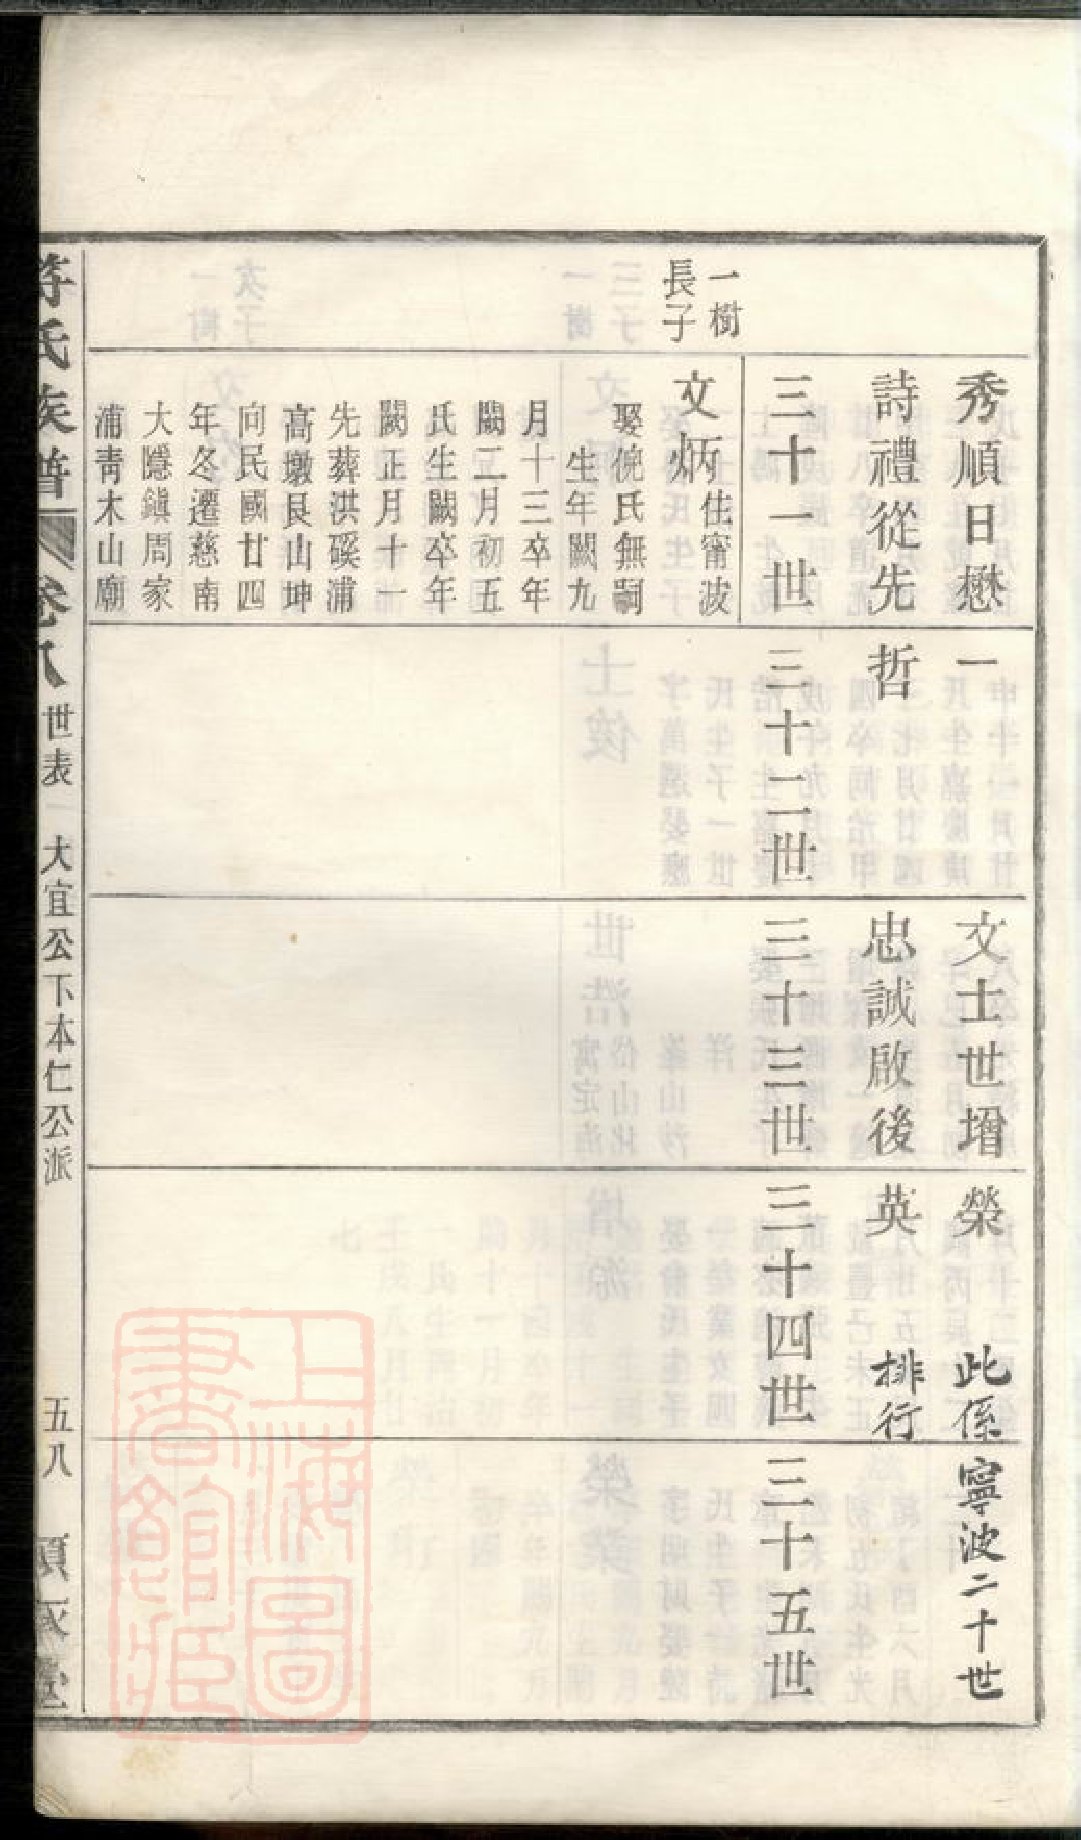 秀順日懋一文士世增榮
詩禮從先哲忠誠啟後英
此係寧波二十世
排行
三十一世
三十二世
三十三世
三十四世
三十五世
一樹
長子
文炳住甯波
娶倪氏無嗣
生年闕九
月十三卒年
闕二月初五
氏生闕卒年
闕正月十一
先葬洪磎浦
高墩艮山坤
向民國廿四
年冬遷慈南
大隱鎭周家
浦靑木山廟
氏族譜 卷八 世表 大宜公下本仁公派 五八
上海圖書館藏